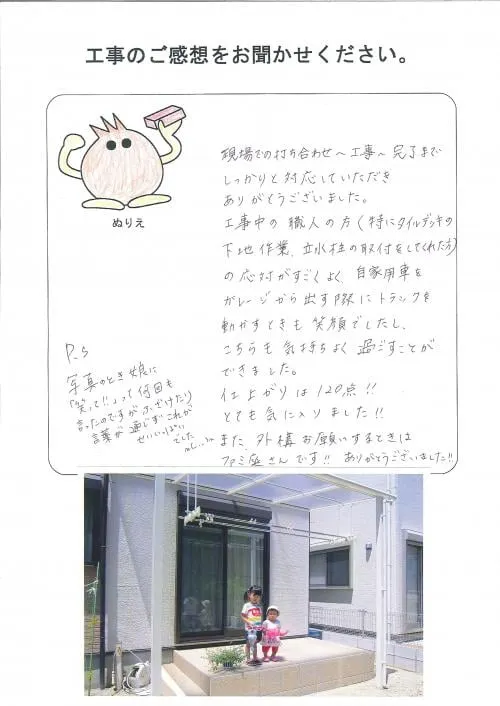 工事のご感想をお聞かせください。
ぬりえ
現場での打ち合わせ〜工事〜完了まで
しっかりと対応していただき
ありがとうございました。
工事中の職人の方(特にタイルデッキの
下地作業、立水栓の取付をしてくれた方)
の応対がすごくよく、自家用車を
ガレージから出す際にトラックを
動かすときも笑顔でしたし、
こちらも気持ちよく過ごすことが
できました。
仕上がりは120点!!
とても気に入りました!!
また、外構お願いするときは
ファミ庭さんです!! ありがとうございました!!
P.S
写真のとき娘に
「笑って!!」って何回も
言ったのですがふざけたり
言葉が通じず、これが
せいいっぱい
でした
m(_ _)m